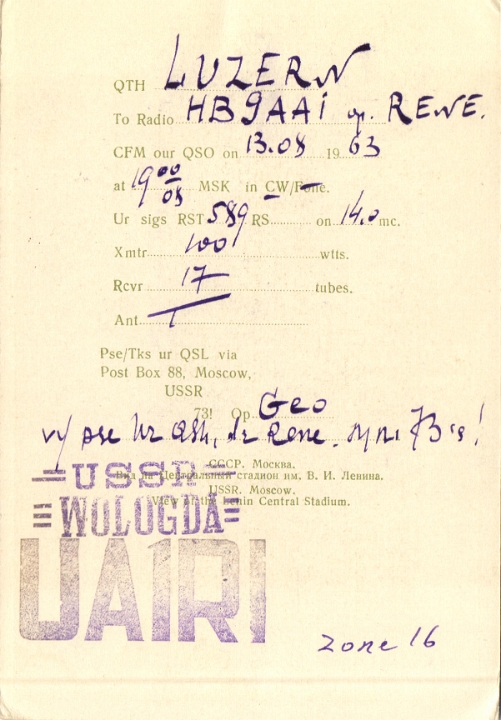 QTH LUZERN
To Radio HB9AAI op. RENE.
CFM our QSO on 13.08 1963
at 19 00/08 MSK in CW/Fone.
Ur sigs RST 589 RS on 14.0 mc.
Xmtr 100 wtts.
Rcvr 17 tubes.
Ant
Pse/Tks ur QSL via
Post Box 88, Moscow,
USSR
73! Op. Geo
vy pse ur QSL, dr Rene. 73's!
СССР. Москва.
Вид на Центральный стадион им. В. И. Ленина.
USSR. Moscow.
View of the Lenin Central Stadium.
=USSR=
≡WOLOGDA≡
UA1RI
zone 16